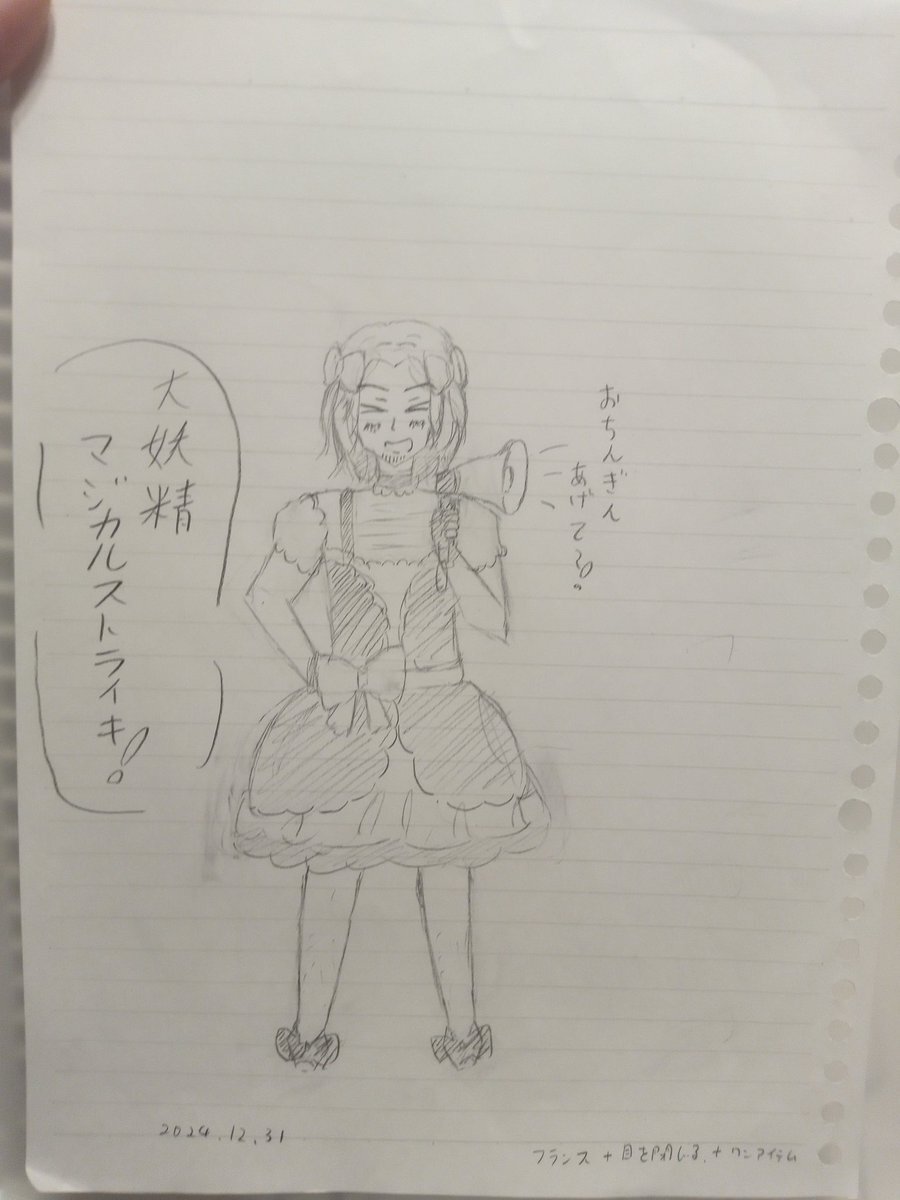 大妖精
マジカルストライキ!
おちんぎん
あげてろ!
2024.12.31
フランス + 目を閉じる + ワンアイテム